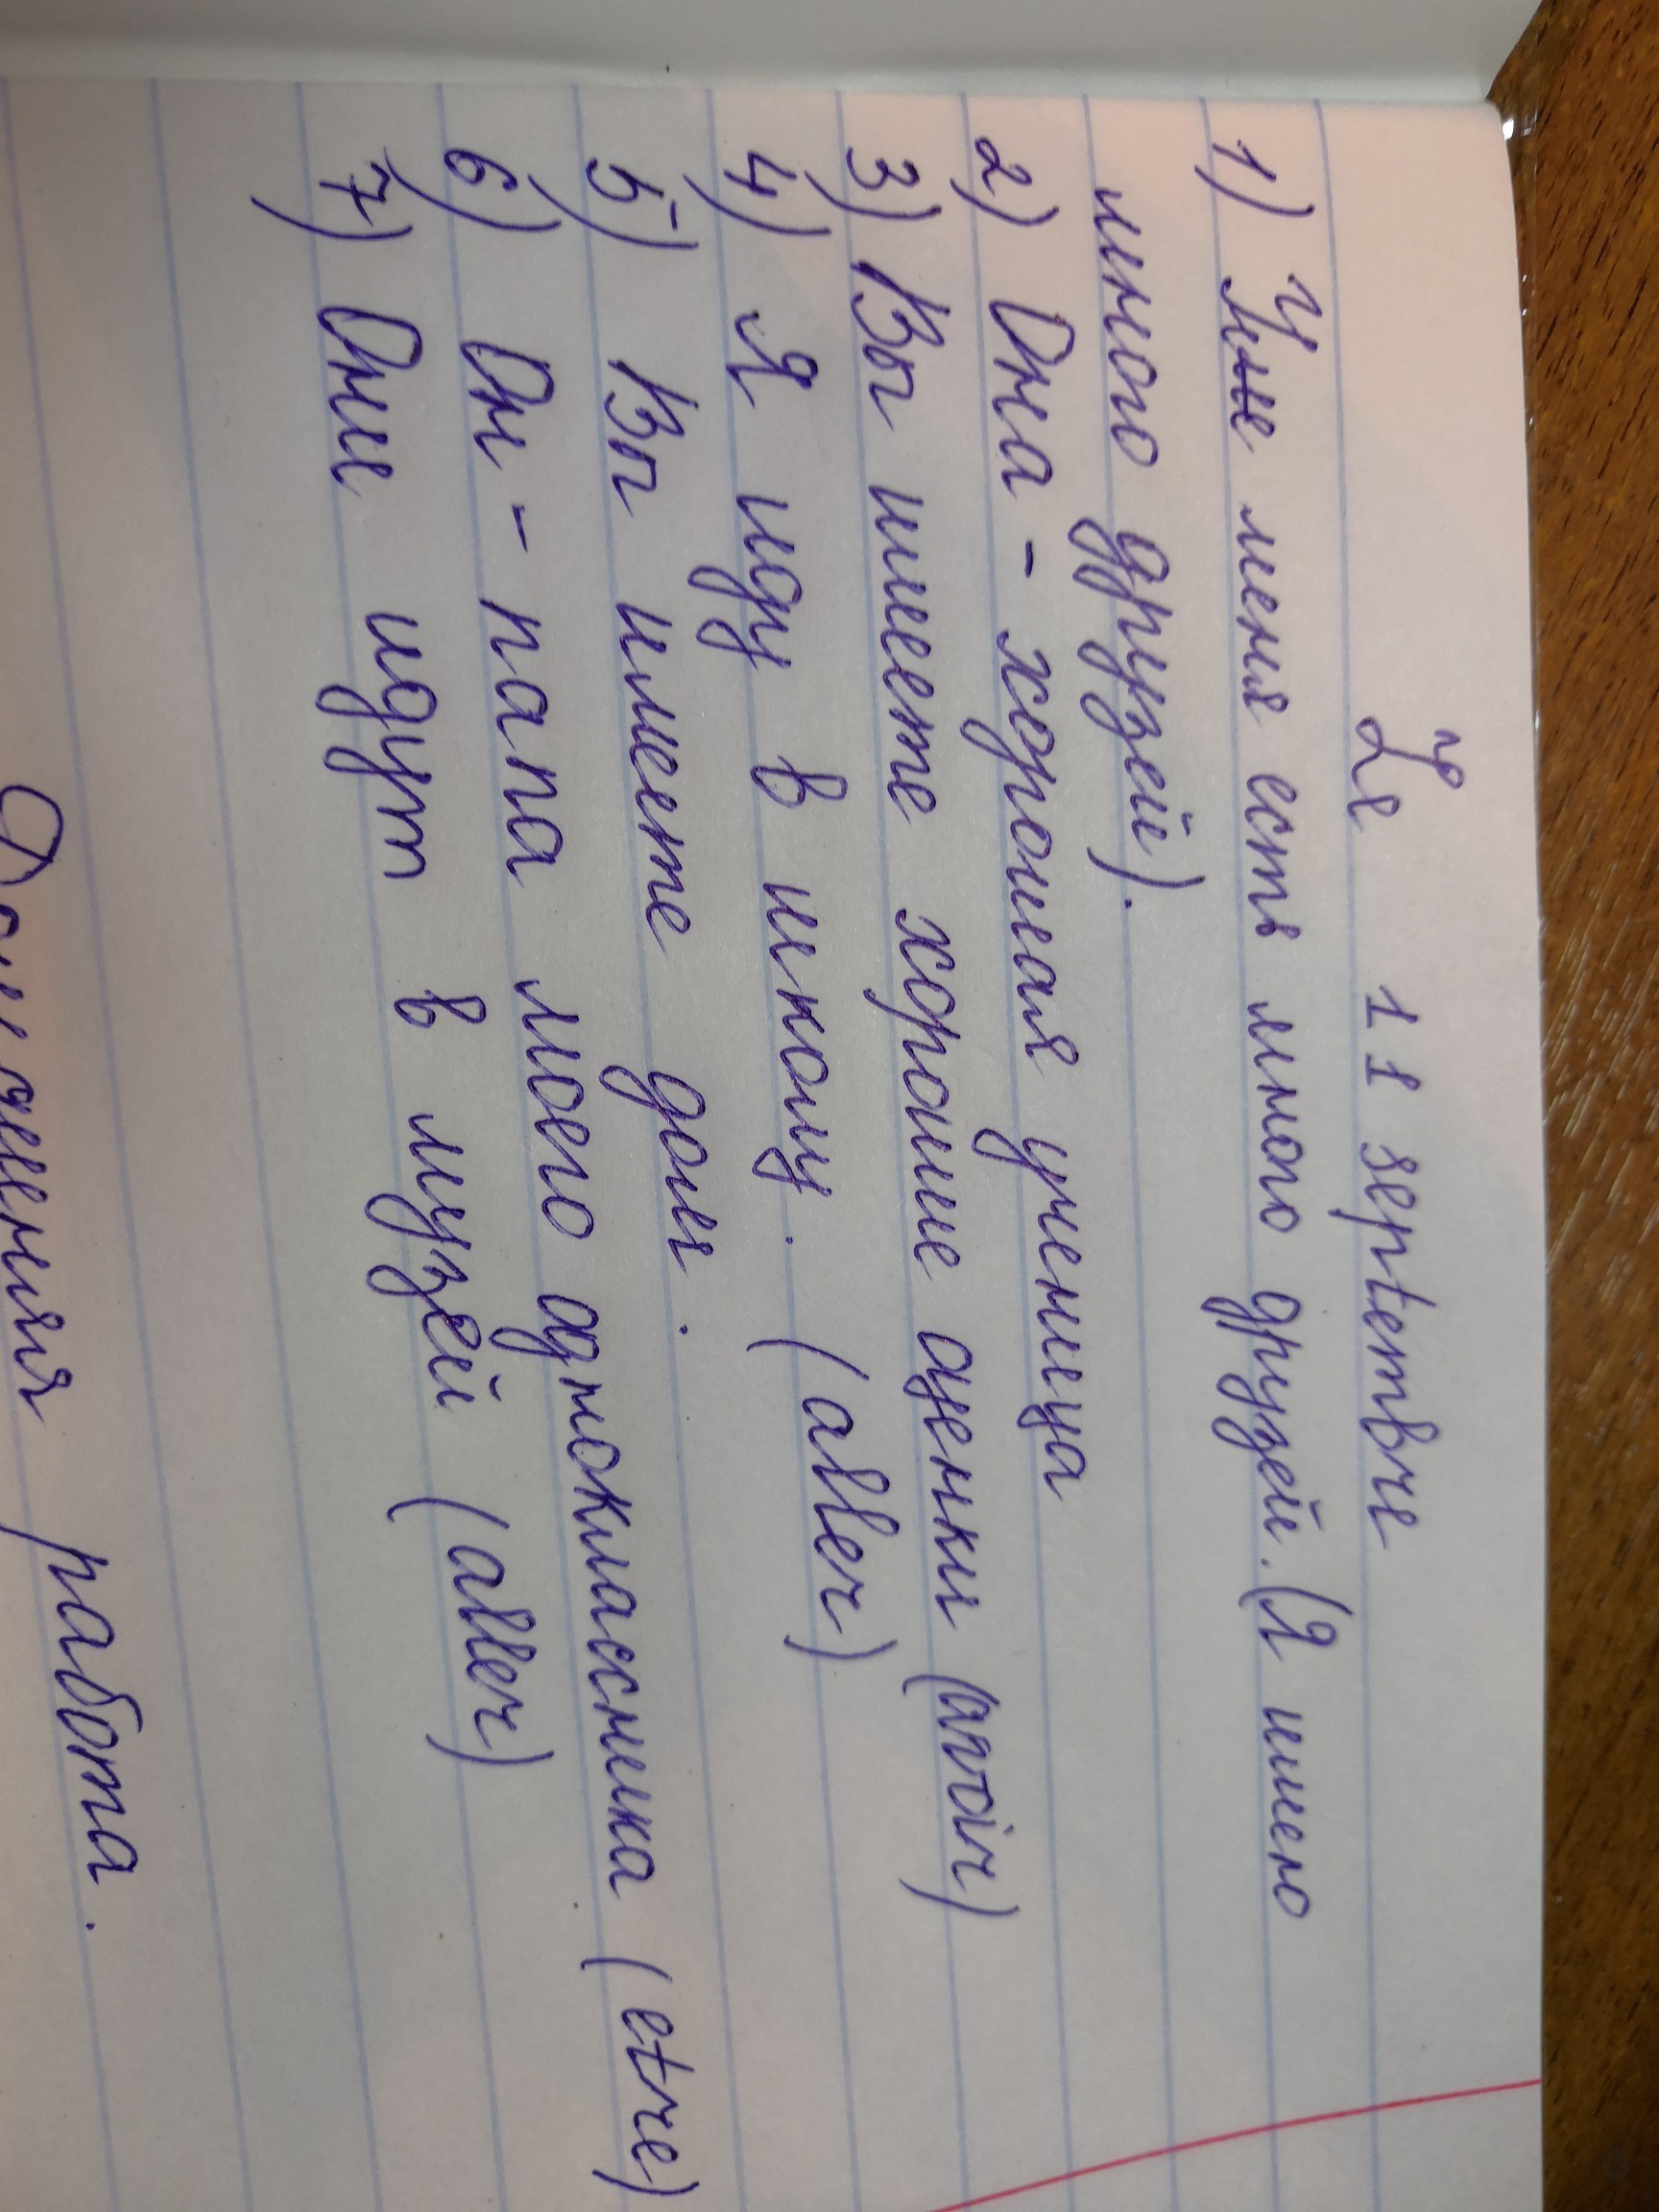 Le 11 septembre
1) Уме меня есть много друзей. (Я имею
много друзей).
2) Она - хорошая ученица
3) Вы имеете хорошие оценки (avoir)
4) Я иду в школу. (aller)
5) Вы имеете дом.
6) Он - папа моего одноклассника (etre)
7) Они идут в музей (aller)
Домашняя работа.